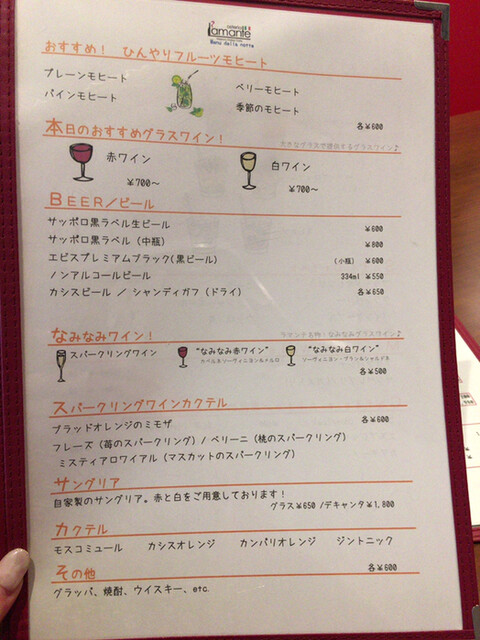 l'amante
Menu della notte
おすすめ! ひんやりフルーツモヒート
プレーンモヒート ベリーモヒート
パインモヒート 季節のモヒート
各¥600
本日のおすすめグラスワイン!
大きなグラスで提供するグラスワイン♪
赤ワイン 白ワイン
¥700~ ¥700~
BEER/ビール
サッポロ黒ラベル生ビール ¥600
サッポロ黒ラベル (中瓶) ¥800
エビスプレミアムブラック(黒ビール) (小瓶) ¥600
ノンアルコールビール 334ml ¥550
カシスビール / シャンディガフ (ドライ) 各¥650
なみなみワイン!
ラマンテ名物・なみなみグラスワイン♪
スパークリングワイン "なみなみ赤ワイン" "なみなみ白ワイン"
カベルネソーヴィニヨン&メルロ ソーヴィニヨン・ブラン&シャルドネ
各¥500
スパークリングワインカクテル
ブラッドオレンジのミモザ 各¥600
フレーズ (苺のスパークリング) / ベリーニ (桃のスパークリング)
ミスティアロワイアル (マスカットのスパークリング)
サングリア
自家製のサングリア。赤と白をご用意しております!
グラス¥650 /デキャンタ¥1,800
カクテル
モスコミュール カシスオレンジ カンパリオレンジ ジントニック
その他 各¥600
グラッパ、焼酎、ウイスキー、etc.